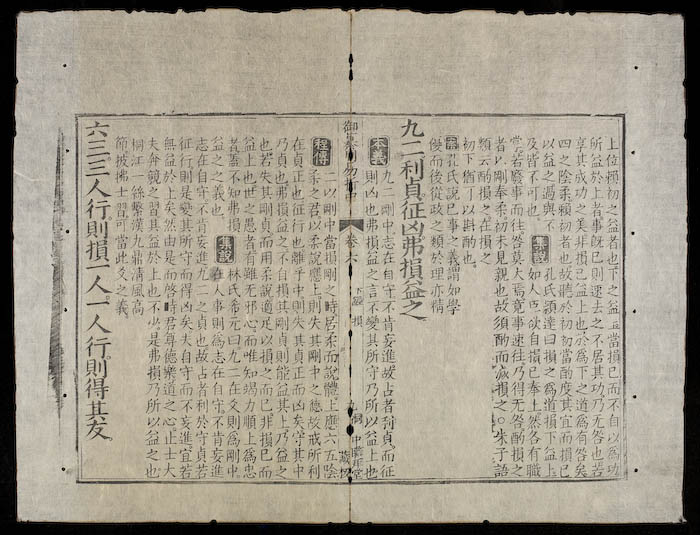 上位賴初之益者也下之益上當損己而不自以爲功
所益於上者事既已則速去之不居其功乃无咎也若
享其成功之美非損己益上也於爲下之道爲有咎矣
四之陰柔賴初者也故聽於初初當酌度其宜而損己
以益之過與不
及皆不可也
集說
孔氏穎達曰損之爲道損下益上
如人臣欲自損己奉上然各有職
掌若廢事而往咎莫大焉竟事速往乃得无咎酌損之
者以剛奉柔初未見親也故須酌而減損之○朱子語
類云酌損之在損之
初下猶可以斟酌也
案孔氏說已事之義謂如學
優而後從政之類於理亦精
九二利貞征凶弗損益之
本義 九二剛中志在自守不肯妄進故占者利貞而征
則凶也弗損益之言不變其所守乃所以益上也
卷六 下經 損
程傳 二以剛中當損剛之時居柔而說體上應六五陰
柔之君以柔說應上則失其剛中之德故戒所利
在貞正也征行也離乎中則失其貞正而凶矣守其中
乃貞也弗損益之不自損其剛貞則能益其上乃益之
也若失其剛貞而用柔說適足以損之而已非損己而
益上也世之愚者有雖无邪心而唯知竭力順上爲忠
者蓋不知弗損
益之之義也
集說
林氏希元曰九二在爻則爲剛中
在人事則爲志在自守不肯妄進
志在自守不肯妄進九二之貞也故占者利於守貞若
征行則是變其所守而得凶矣夫自守而不妄進宜若
無益於上矣然由是而啓時君尊德樂道之心止士大
夫奔競之習其益於上也不少是弗損乃所以益之也
桐江一絲繫漢九鼎清風高
節披拂士習可當此爻之義
六三三人行則損一人一人行則得其友